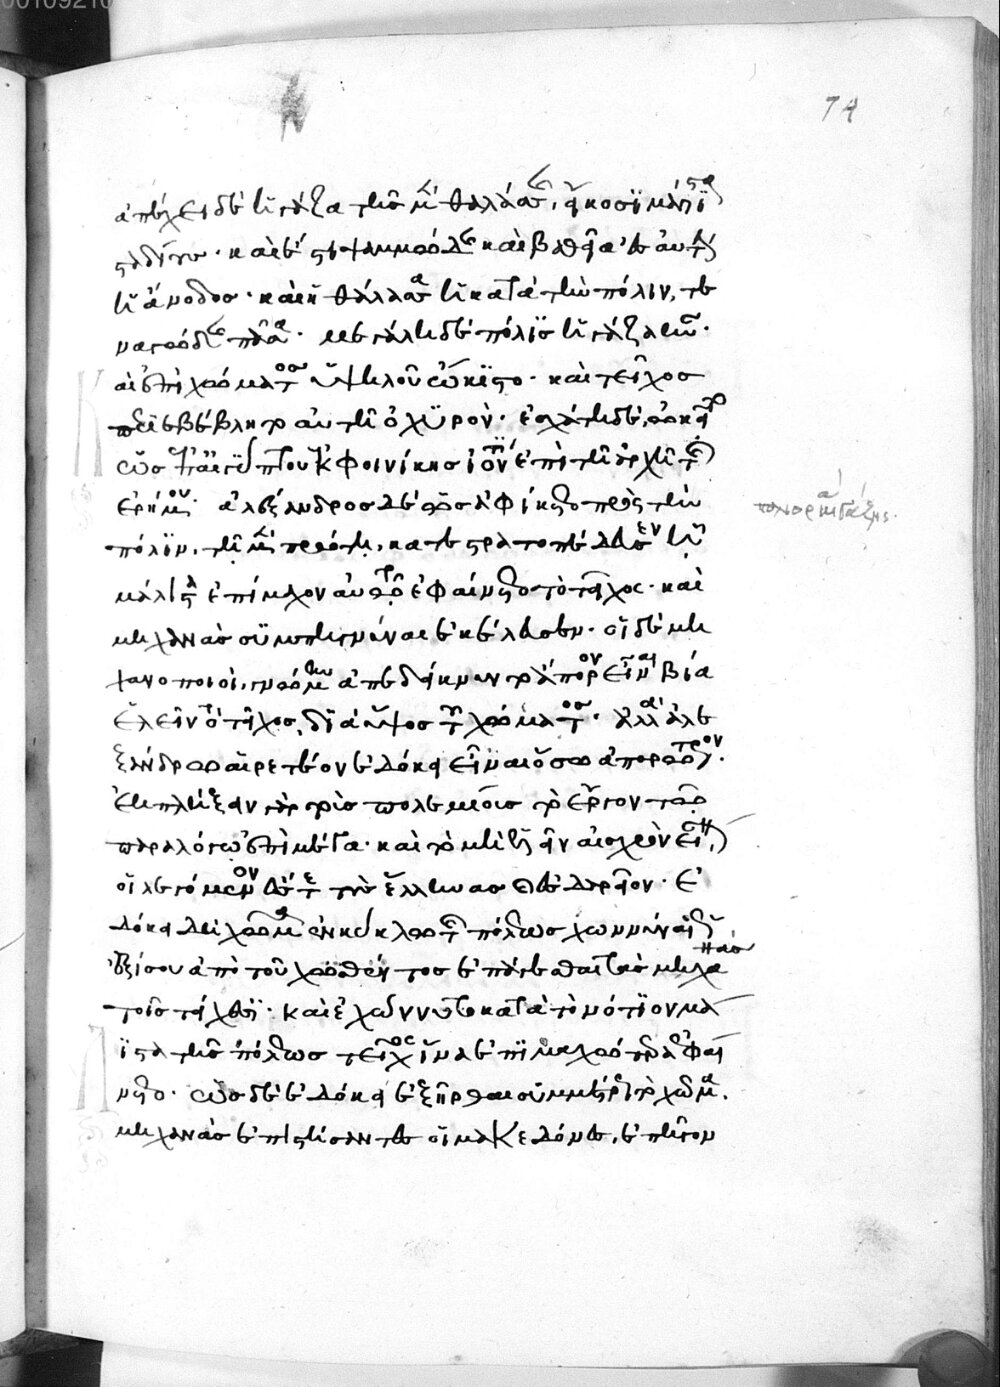 ἀπέχει δὲ ἡ γάζα τῆς μὲν θαλάσσης, εἴκοσι μάλιστα
σταδίους. καὶ ἔστι ψαμμώδης καὶ βαθεῖα ἐς αὐτὴν
ἡ ἄνοδος. καὶ ἡ θάλασσα ἡ κατὰ τὴν πόλιν, τε
ναγώδης πᾶσα. μεγάλη δὲ πόλις ἡ γάζα ἦν.
καὶ ἐπὶ χώματος ὑψηλοῦ ᾤκιστο. καὶ τεῖχος
περιεβέβλητο αὐτῇ ὀχυρόν. ἐσχάτη δὲ, ᾠκεῖτο
ὡς ἐπ' αἴγυπτον ἐκ φοινίκης ἰόντι ἐπὶ τῇ ἀρχῇ τῆς
ἐρήμου. ἀλέξανδρος δὲ ὡς ἀφίκετο πρὸς τὴν
πόλιν, τῇ μὲν πρώτῃ, κατεστρατοπέδευσεν ᾗ
μάλιστα ἐπίμαχον αὐτῷ ἐφαίνετο τὸ τεῖχος. καὶ
μηχανὰς συμπηγνύναι ἐκέλευσεν. οἱ δὲ μη
χανοποιοὶ, γνώμην ἀπεδείκνυντο ἄπορον εἶναι βίᾳ
ἑλεῖν τὸ τεῖχος, διὰ ὕψος τοῦ χώματος. ἀλλὰ ἀλε
ξάνδρῳ αἱρετέον ἐδόκει εἶναι ὅσῳ ἀπορώτερον.
ἐκπλήξειν γὰρ τοὺς πολεμίους τὸ ἔργον τῷ
παραλόγῳ ἐπὶ μέγα. καὶ τὸ μὴ ἑλεῖν αἰσχρὸν εἶναι,
οἱ λεγόμενον ἔς τε τοὺς ἕλληνας καὶ δαρεῖον. ἐ
δόκει δὲ χῶμα ἐν κύκλῳ τῆς πόλεως χωννύναι
ἐξ ἴσου ἀπὸ τοῦ χωσθέντος ἐπάγεσθαι τὰς μηχανὰς
τοῖς τείχεσι. καὶ ἐχώννυτο κατὰ τὸ νότιον μά
λιστα τῆς πόλεως τεῖχος ἵνα ἐπιμαχώτερα ἐφαί
νετο. ὡς δὲ ἐδόκει ἐξῆρθαι συμμέτρως τὸ χῶμα.
μηχανὰς ἐπιστήσαντες οἱ μακεδόνες, ἐπῆγον
πολιορκία γάζης.
74